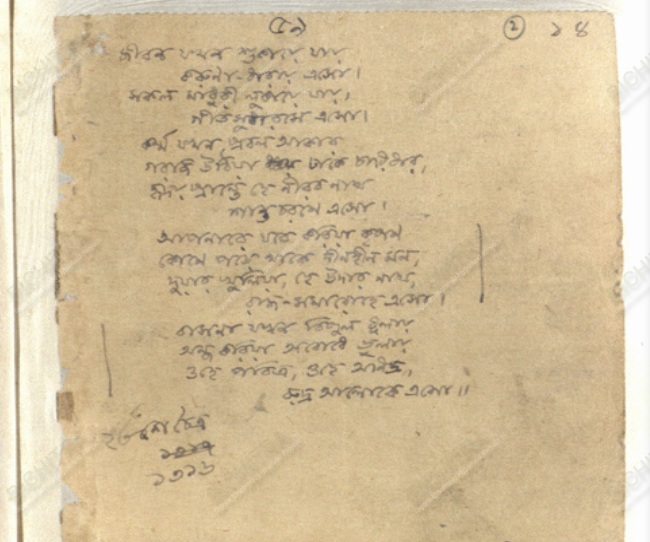 (৫৯) ② ১৪
জীবন যখন শুকায়ে যায়
করুণা-ধারায় এসো।
সকল মাধুরী লুকায়ে যায়,
গীতসুধারসে এসো।
কর্ম্ম যখন প্রবল আকার
গরজি উঠিয়া ঢাকে চারিধার,
হৃদয়প্রান্তে হে নীরব নাথ
শান্ত চরণে এসো।
আপনারে যবে করিয়া কৃপণ
কোণে পড়ে থাকে দীনহীন মন,
দুয়ার খুলিয়া, হে উদার নাথ,
রাজ-সমারোহে এসো।
বাসনা যখন বিপুল ধূলায়
অন্ধ করিয়া অবোধে ভুলায়
ওহে পবিত্র, ওহে অনিদ্র,
রুদ্র আলোকে এসো॥
২৮শে চৈত্র
১৩১৬